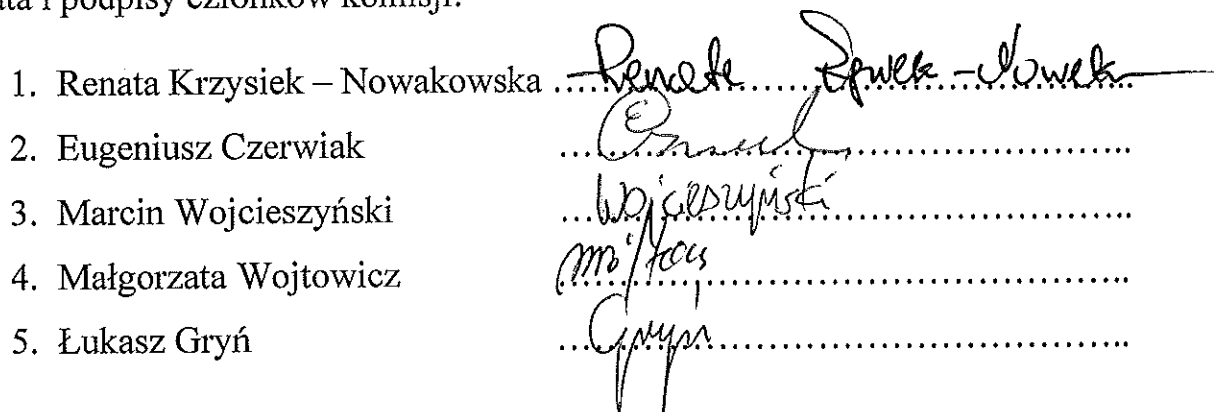 ata i podpisy członków komisji:
1. Renata Krzysiek – Nowakowska ..... Renata
2. Eugeniusz Czerwiak ..........
3. Marcin Wojcieszyński ..... Wojcieszyński
4. Małgorzata Wojtowicz ..........
5. Łukasz Gryń ..... Gryń